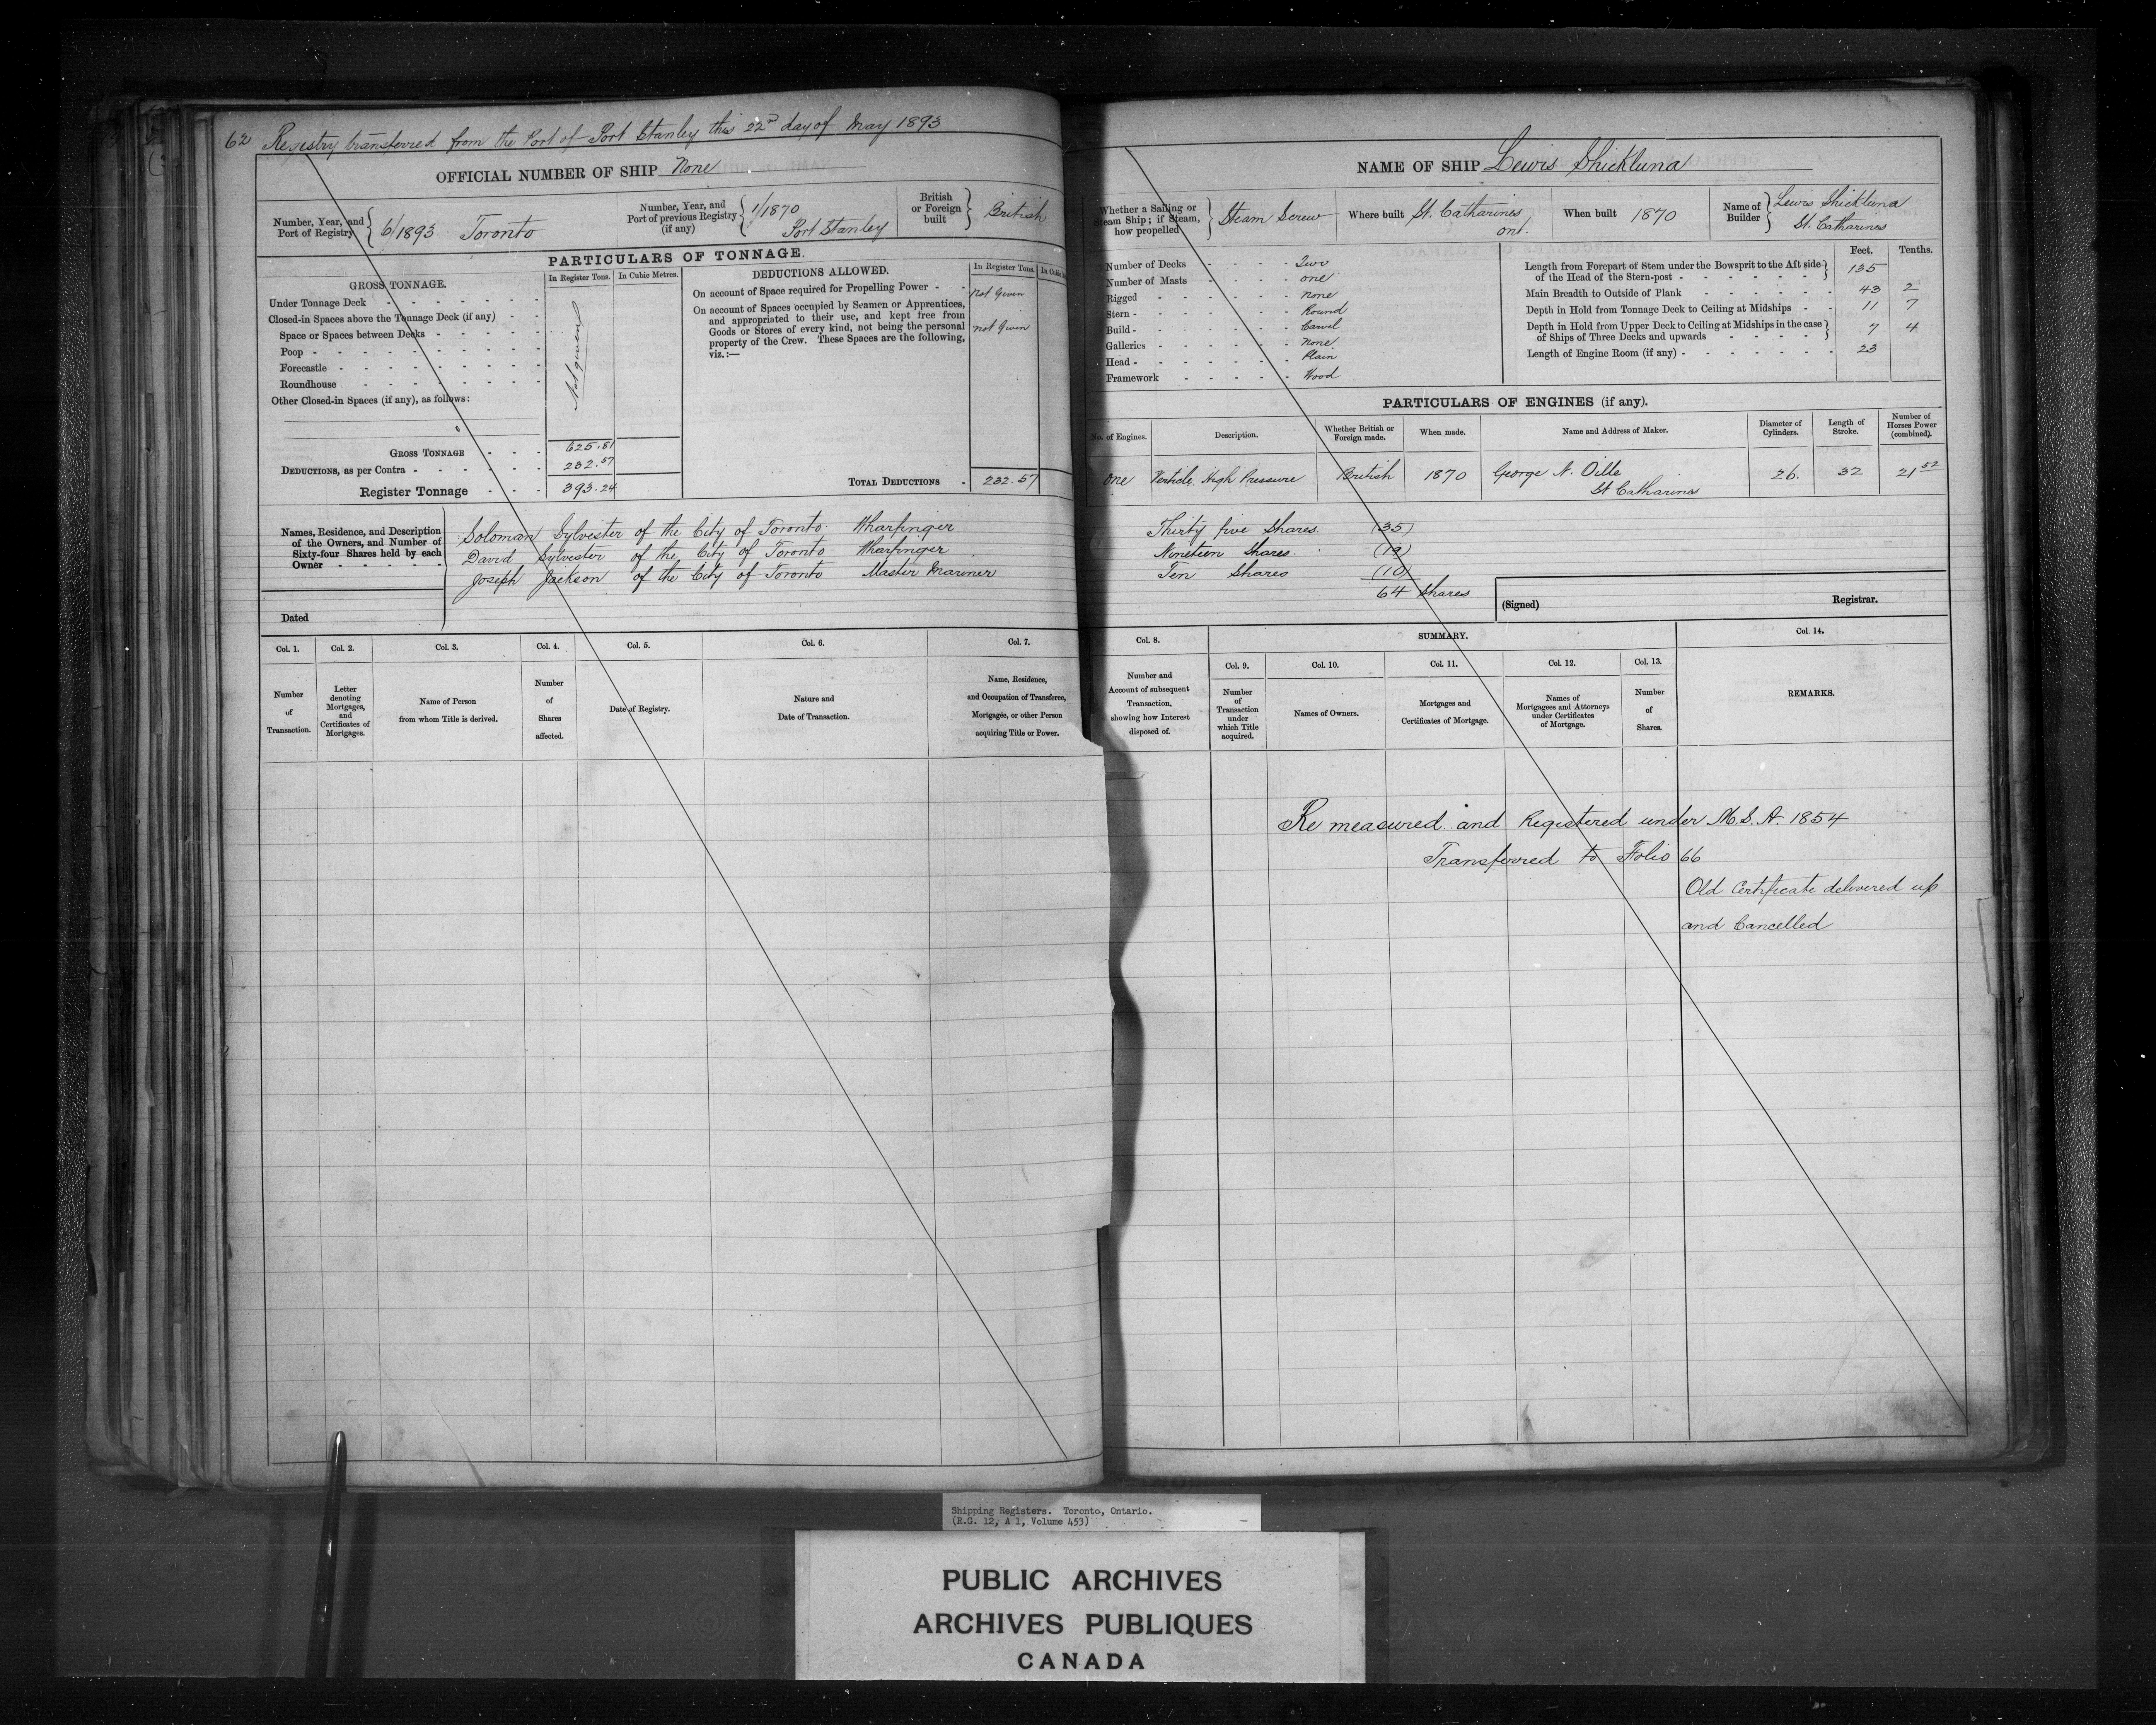 62 Registry transferred from the Port of Port Stanley this 22nd day of May 1893
OFFICIAL NUMBER OF SHIP None
Number, Year, and Port of Registry 6/1893 Toronto
Number, Year, and Port of previous Registry (if any) 1/1870 Port Stanley
British or Foreign built British
PARTICULARS OF TONNAGE.
GROSS TONNAGE.
In Register Tons. In Cubic Metres.
Under Tonnage Deck
Closed-in Spaces above the Tonnage Deck (if any)
Space or Spaces between Decks
Poop
Forecastle
Roundhouse
Other Closed-in Spaces (if any), as follows:
Not given
GROSS TONNAGE 625.81
DEDUCTIONS, as per Contra 232.57
Register Tonnage 393.24
DEDUCTIONS ALLOWED.
In Register Tons. In Cubic
On account of Space required for Propelling Power Not Given
On account of Spaces occupied by Seamen or Apprentices,
and appropriated to their use, and kept free from
Goods or Stores of every kind, not being the personal
property of the Crew. These Spaces are the following,
viz.:—
not Given
TOTAL DEDUCTIONS 232.57
Names, Residence, and Description
of the Owners, and Number of
Sixty-four Shares held by each
Owner
Soloman Sylvester of the City of Toronto Wharfinger
David Sylvester of the City of Toronto Wharfinger
Joseph Jackson of the City of Toronto Master Mariner
Dated
Col. 1. Col. 2. Col. 3. Col. 4. Col. 5. Col. 6. Col. 7.
Number of Transaction.
Letter denoting Mortgages, and Certificates of Mortgages.
Name of Person from whom Title is derived.
Number of Shares affected.
Date of Registry.
Nature and Date of Transaction.
Name, Residence, and Occupation of Transferee, Mortgagee, or other Person acquiring Title or Power.
NAME OF SHIP Lewis Shickluna
Whether a Sailing or Steam Ship; if Steam, how propelled Steam Screw
Where built St. Catharines Ont.
When built 1870
Name of Builder Lewis Shickluna St. Catharines
Number of Decks Two
Number of Masts one
Rigged none
Stern Round
Build Carvel
Galleries None
Head Plain
Framework Wood
Feet. Tenths.
Length from Forepart of Stem under the Bowsprit to the Aft side
of the Head of the Stern-post 135
Main Breadth to Outside of Plank 43 2
Depth in Hold from Tonnage Deck to Ceiling at Midships 11 7
Depth in Hold from Upper Deck to Ceiling at Midships in the case
of Ships of Three Decks and upwards 7 4
Length of Engine Room (if any) 23
PARTICULARS OF ENGINES (if any).
No. of Engines. Description. Whether British or Foreign made. When made. Name and Address of Maker. Diameter of Cylinders. Length of Stroke. Number of Horses Power (combined).
One Verticle High Pressure British 1870 George N. Oille St Catharines 26. 32 21 52
Thirty five Shares (35)
Nineteen Shares (19)
Ten Shares (10)
64 Shares
(Signed) Registrar.
Col. 8. SUMMARY. Col. 14.
Col. 9. Col. 10. Col. 11. Col. 12. Col. 13.
Number and Account of subsequent Transaction, showing how Interest disposed of.
Number of Transaction under which Title acquired.
Names of Owners.
Mortgages and Certificates of Mortgage.
Names of Mortgagees and Attorneys under Certificates of Mortgage.
Number of Shares.
REMARKS.
Re measured and Registered under M.S.A. 1854
Transferred to Folio 66
Old Certificate delivered up
and Cancelled
Shipping Registers. Toronto, Ontario.
(R.G. 12, A 1, Volume 453)
PUBLIC ARCHIVES
ARCHIVES PUBLIQUES
CANADA